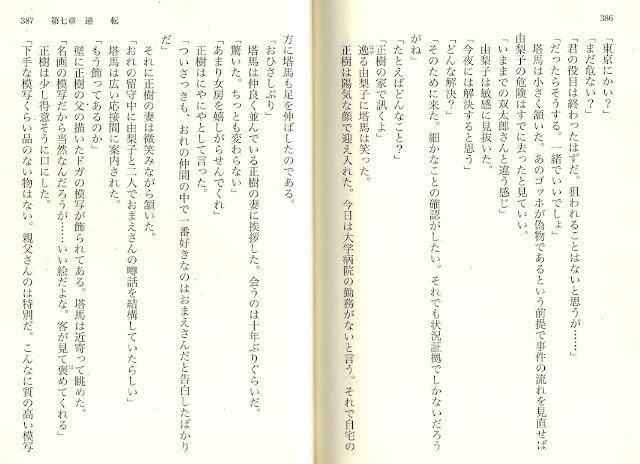 386
「東京にかい？」
「まだ危ない？」
「君の役目は終わったはずだ。狙われることはないと思うが……」
「だったらそうする。一緒でいいでしょ」
塔馬は小さく頷いた。あのゴッホが偽物であるという前提で事件の流れを見直せば
由梨子の危険はすでに去ったと見ていい。
「いままでの双太郎さんと違う感じ」
由梨子は敏感に見抜いた。
「今夜には解決すると思う」
「どんな解決？」
「そのために来た。細かなことの確認がしたい。それでも状況証拠でしかないだろう
がね」
「たとえばどんなこと？」
「正樹の家で訊くよ」
逸る由梨子に塔馬は笑った。
はや
正樹は陽気な顔で迎え入れた。今日は大学病院の勤務がないと言う。それで自宅の
387 第七章 逆 転
方に塔馬も足を伸ばしたのである。
「おひさしぶり」
塔馬は仲良く並んでいる正樹の妻に挨拶した。会うのは十年ぶりぐらいだ。
「驚いた。ちっとも変わらない」
「あまり女房を嬉しがらせんでくれ」
正樹はにやにやとして言った。
「ついさっきも、おれの仲間の中で一番好きなのはおまえさんだと告白したばかり
だ」
それに正樹の妻は微笑みながら頷いた。
「おれの留守中に由梨子と二人でおまえさんの噂話を結構していたらしい」
塔馬は広い応接間に案内された。
「もう飾ってあるのか」
壁に正樹の父の描いたドガの模写が飾られてある。塔馬は近寄って眺めた。
「名画の模写だから当然なんだろうが……いい絵だよな。客が見て褒めてくれる」
正樹は少し得意そうに口にした。
「下手な模写くらい品のない物はない。親父さんのは特別だ。こんなに質の高い模写